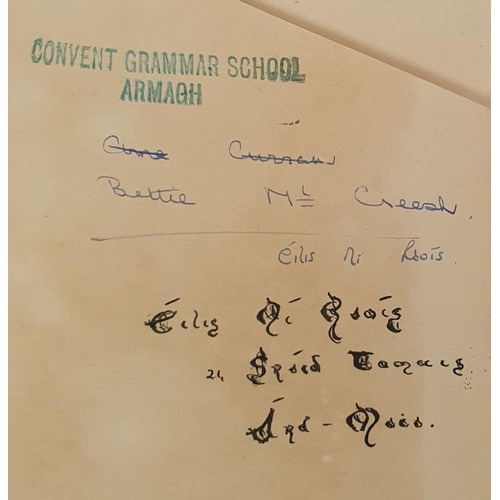 CONVENT GRAMMAR SCHOOL
ARMAGH
Curran
Bettie Mc Creesh.
Éilis Ní Raois.
Éilis Ní Raois
24 Sráid Tomáis
Árd-Mhaċa.